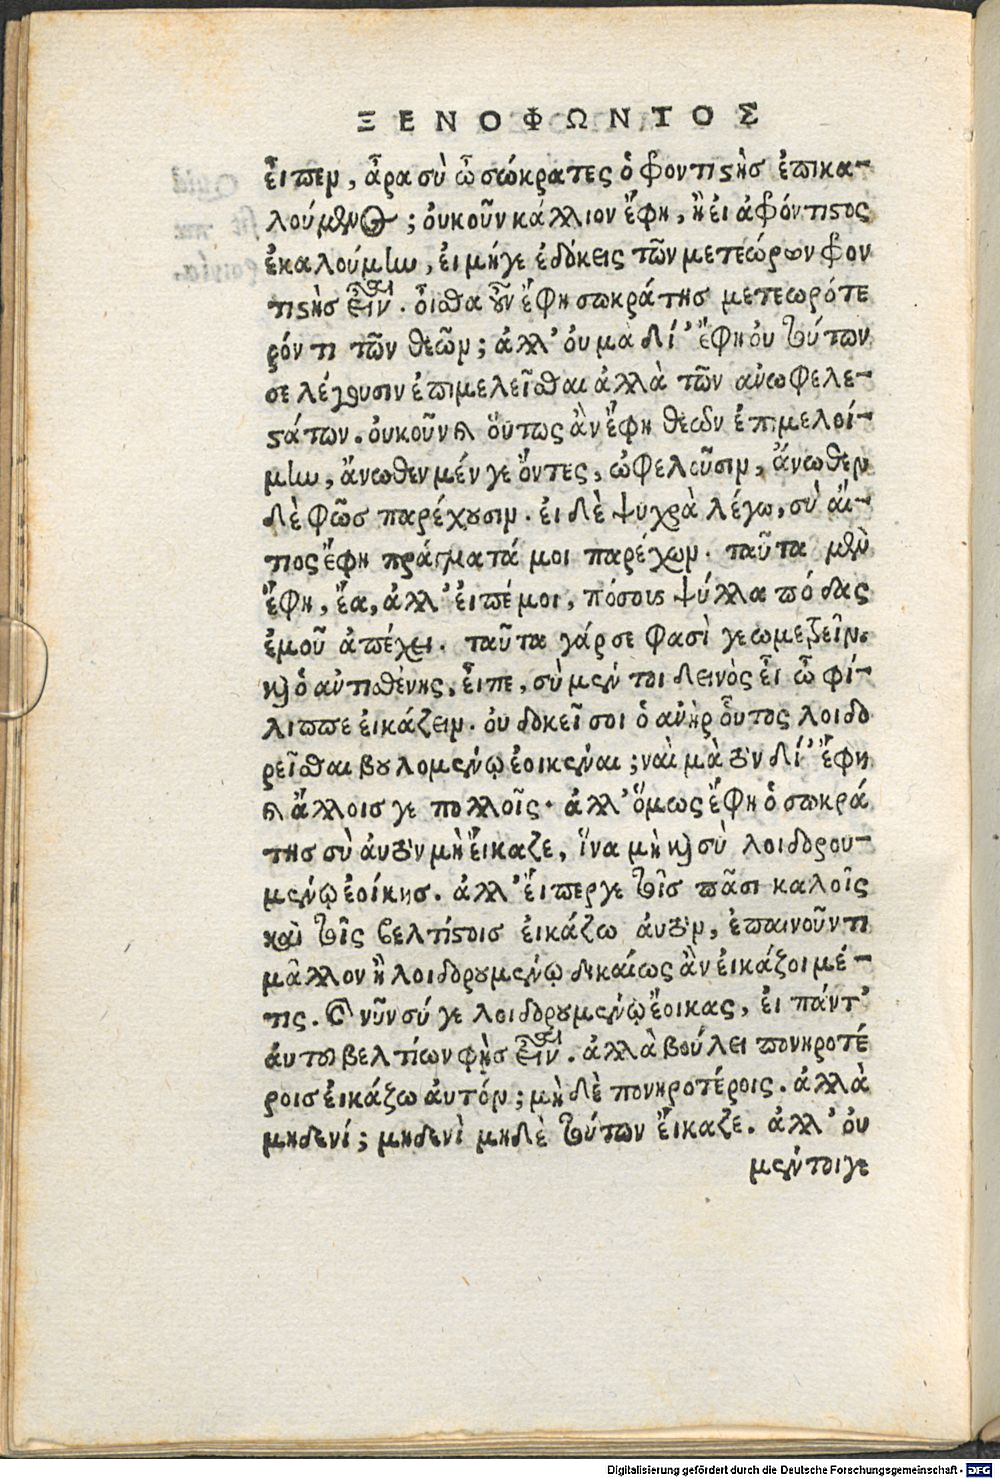 ΞΕΝΟΦΩΝΤΟΣ
εἶπεν, ἆρα σὺ ὦ σώκρατες ὁ φροντιστὴς ἐπικα-
λούμενος; ὀυκοῦν κάλλιον ἔφη, ἢ ἐι ἀφρόντιστος
ἐκαλούμην, ἐι μήγε ἐδόκεις τῶν μετεώρων φρον
τιστὴς εἶναι. οἶσθα οὖν ἔφη σωκράτης μετεωρότε
ρόν τι τῶν θεῶν; ἀλλ' ὀυ μὰ δί' ἔφη ὀυ τούτων
σε λέγουσιν ἐπιμελεῖσθαι ἀλλὰ τῶν ανωφελε-
στάτων. ὀυκοῦν καὶ ὅυτως ἂν ἔφη θεῶν ἐπιμελοί-
μην, ἄνωθεν μέν γε ὄντες, ὠφελοῦσιν, ἄνωθεν
δὲ φῶς παρέχουσιν. ἐι δὲ ψυχρὰ λέγω, σὺ ἄι-
τιος ἔφη πράγματά μοι παρέχων. ταῦτα μὲν
ἔφη, ἔα, ἀλλ' ἐιπέ μοι, πόσους ψύλλα πόδας
ἐμοῦ ἀπέχει. ταῦτα γάρ σε φασὶ γεωμετρεῖν.
καὶ ὁ ἀντισθένης, εἶπε, σὺ μέντοι δεινὸς εἶ ὦ φί-
λιππε ἐικάζειν. ὀυ δοκεῖ σοι ὁ ανὴρ ὗτος λοιδο
ρεῖσθαι βουλομένῳ ἐοικέναι; ναὶ μὰ τὸν δί' ἔφη
καὶ ἄλλοις γε πολλοῖς. ἀλλ' ὅμως ἔφη ὁ σωκρά
της σὺ ἀυτὸν μὴ ἔικαζε, ἵνα μὴ καὶ σὺ λοιδορου-
μένῳ ἐοίκης. ἀλλ' ἔιπεργε τοῖς πᾶσι καλοῖς
καὶ τοῖς βελτίστοις ἐικάζω ἀυτὸν, ἐπαινοῦντι
μᾶλλον ἢ λοιδορουμένῳ δικαίως ἂν ἐικάζοι μέ-
τις. καὶ νῦν σύ γε λοιδορουμένῳ ἔοικας, ἐι πάντ'
ἀυτοῦ βελτίων φῂς εἶναι. ἀλλὰ βούλει πονηροτέ
ροις ἐικάζω ἀυτόν; μὴ δὲ πονηροτέροις. ἀλλὰ
μηδενί; μηδενὶ μηδὲ τούτων ἔικαζε. ἀλλ' ὀυ
μέντοιγε
Digitalisierung gefördert durch die Deutsche Forschungsgemeinschaft - DFG